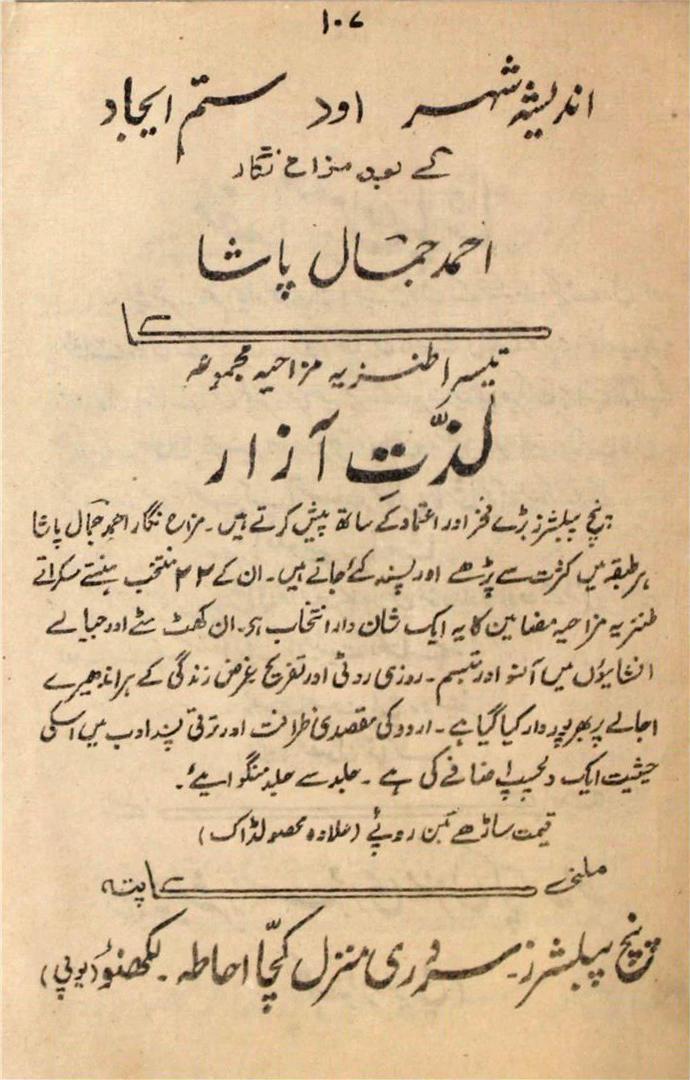 ۱۰۷
اندیشۂ شہر اور ستم ایجاد
کے بعد مزاح نگار
احمد جمال پاشا
کا
تیسرا طنزیہ مزاحیہ مجموعہ
لذّتِ آزار
پنچ پبلشرز بڑے فخر اور اعتماد کے ساتھ پیش کرتے ہیں۔ مزاح نگار احمد جمال پاشا
ہر طبقہ میں کثرت سے پڑھے اور پسند کئے جاتے ہیں۔ ان کے ۲۲ منتخب ہنستے مسکراتے
طنزیہ مزاحیہ مضامین کا یہ ایک شان دار انتخاب ہے۔ ان کھٹ مٹھے اور جیالے
انشائیوں میں آنسو اور تبسم۔ روزی روٹی اور تفریح غرض زندگی کے ہر اندھیرے
اجالے پر بھرپور وار کیا گیا ہے۔ اردو کی مقصدی ظرافت اور ترقی پسند ادب میں اسکی
حیثیت ایک دلچسپ اضافے کی ہے۔ جلد سے جلد منگوایئے۔
قیمت ساڑھے تین روپئے (علاوہ محصولڈاک)
ملنے کا پتہ
پنچ پبلشرز۔ سروری منزل کچّا احاطہ۔ لکھنؤ (یوپی)